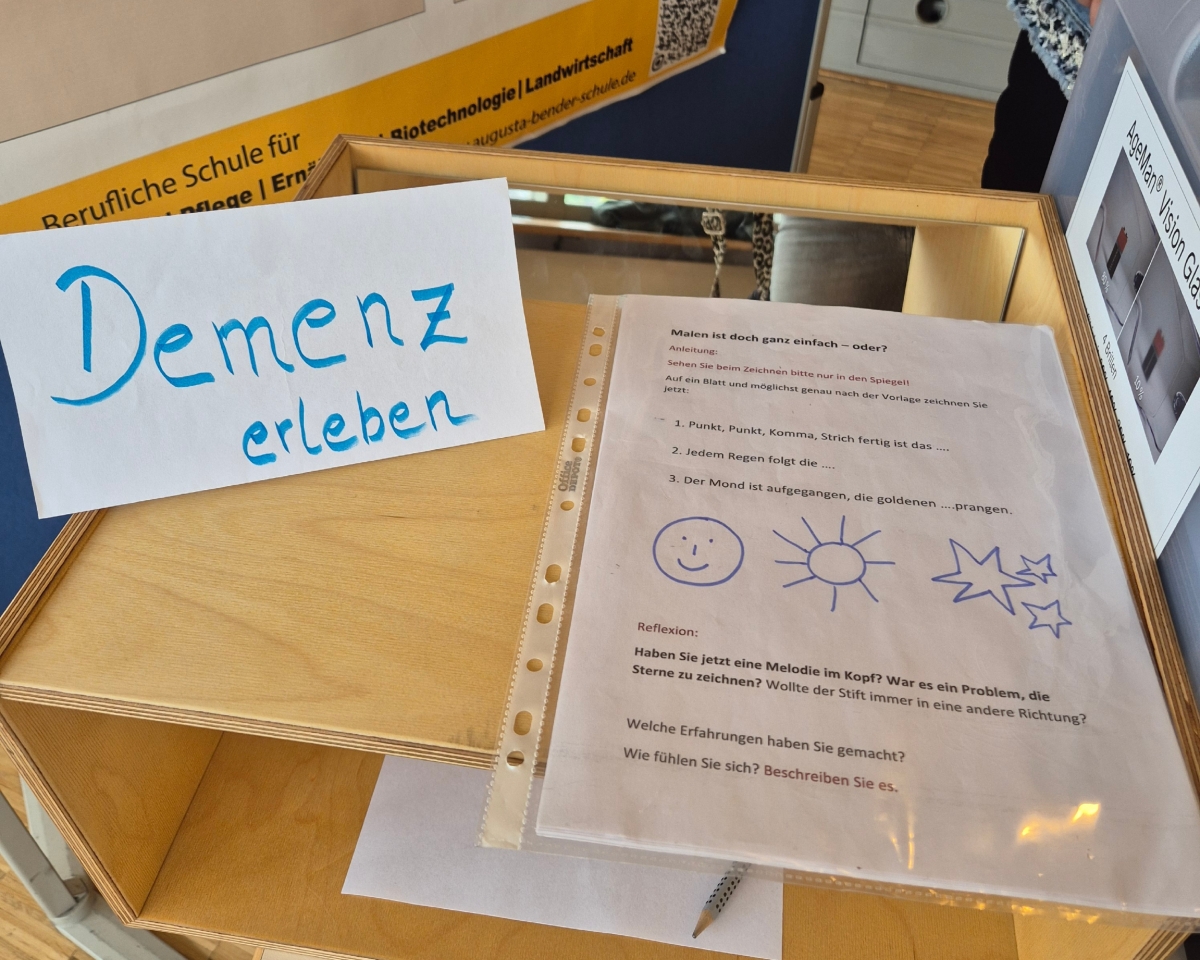 Berufliche Schule für
Biotechnologie | Landwirtschaft
Pflege |
augusta-bender-schule.de
Demenz
erleben
Malen ist doch ganz einfach – oder?
Anleitung:
Sehen Sie beim Zeichnen bitte nur in den Spiegel!
Auf ein Blatt und möglichst genau nach der Vorlage zeichnen Sie
jetzt:
1. Punkt, Punkt, Komma, Strich fertig ist das ....
2. Jedem Regen folgt die ....
3. Der Mond ist aufgegangen, die goldenen ....prangen.
Reflexion:
Haben Sie jetzt eine Melodie im Kopf? War es ein Problem, die
Sterne zu zeichnen? Wollte der Stift immer in eine andere Richtung?
Welche Erfahrungen haben Sie gemacht?
Wie fühlen Sie sich? Beschreiben Sie es.
Office
DEPOT
AgeMan® Vision
4 Brillen